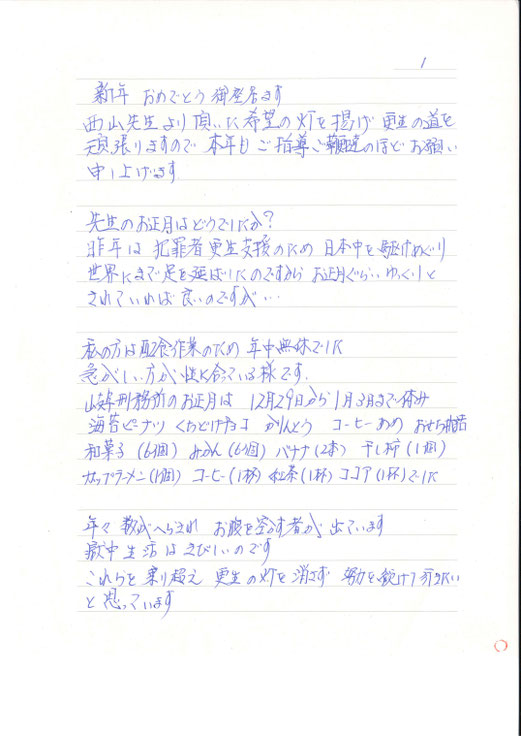 1
新年 おめでとう御座居ます
西山先生より頂いた希望の灯を掲げ 更生の道を
頑張りますので 本年も ご指導ご鞭撻のほど お願い
申し上げます
先生のお正月はどうでしたか?
昨年は 犯罪者更生支援のため 日本中を駆けめぐり
世界にまで足を延ばしたのですから お正月ぐらい ゆっくりと
されていれば良いのですが…
私の方は配食作業のため 年中無休でした
急がしい方が 性に合っている様です.
岐阜刑務所のお正月は 12月29日から1月3日まで休み
海苔ピーナツ くちどけチョコ かりんとう コーヒーあめ おせち
和菓子(6個) みかん(6個) バナナ(2本) 干し柿(1個)
カップラーメン(1個) コーヒー(1杯) 紅茶(1杯) ココア(1杯)でした
年々 数がへらされ お腹を空かす者が 出ています
獄中生活はさびしいのです
これらを乗り超え 更生の灯を消さず 努力を続けて行きたい
と思っています